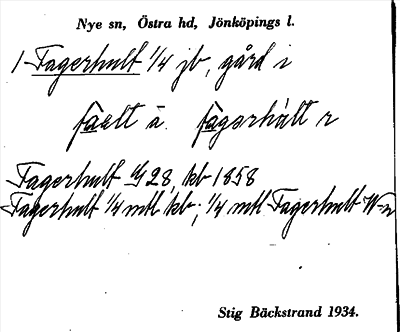 Nye sn, Östra hd, Jönköpings l.
1 Fagerhult 1/4 jb, gård i
fagerhált r
Fagerhult 28, kb 1858
Fagerhult 1/4 mtl kb; 1/4 mtl Fagerhult
Stig Bäckstrand 1934.